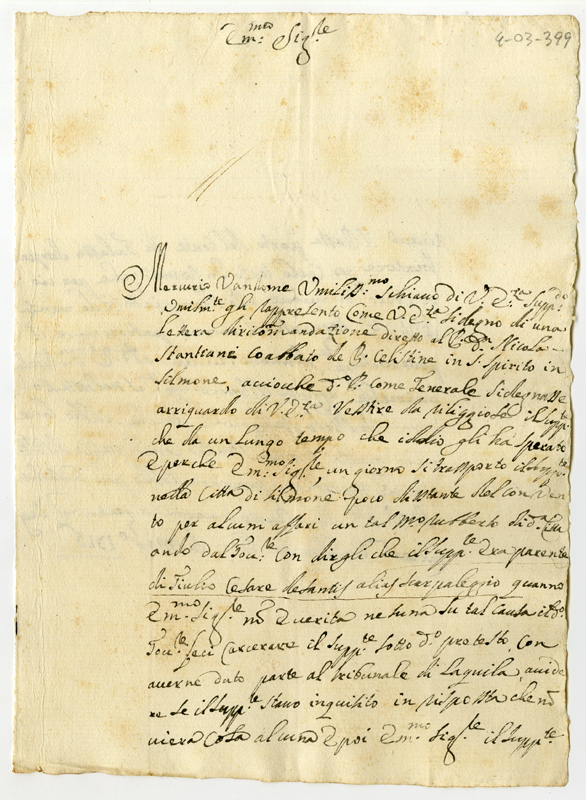 Em:mo Sig:re
4-03-399
Mercurio Vantome Umiliss:mo Schiavo di V. E.za Supp:do
Umilm:te gli rappresento come V. E.za si degno di una
lettera di ricomandazione diretto al P. D. Nicola
Stantiani Coabbaio de P. Celestine in S. Spirito in
Silmone, accioche d:o P. Come Generale si degnasse
a riguardo di V. E.za Vestire da riliggioso il Supp:te
che da un lungo tempo che iddio gli ha sperato
E perche Em:mo Sig:re un giorno si trasporto il Supp:te
nella Citta di Silmone poco distante del Conven
to per alcuni affari un tal Mo
ando dal Gov:re Con dirgli che il Supp:te Era parente
di Giulio Cesare desantis alias Scarpaleggio quanno
Em:mo Sig:re nō E verita nesuna Su tal Causa il d:o
Gov:re feci Carcerare il Supp:te Sotto d:o protesto, Con
averne dato parte al tribunale di Laquila, a vide
re se il Supp:te Stava inquisito in risposta che nō
viera Cosa alcuna E poi Em:mo Sig:re il Supp:te